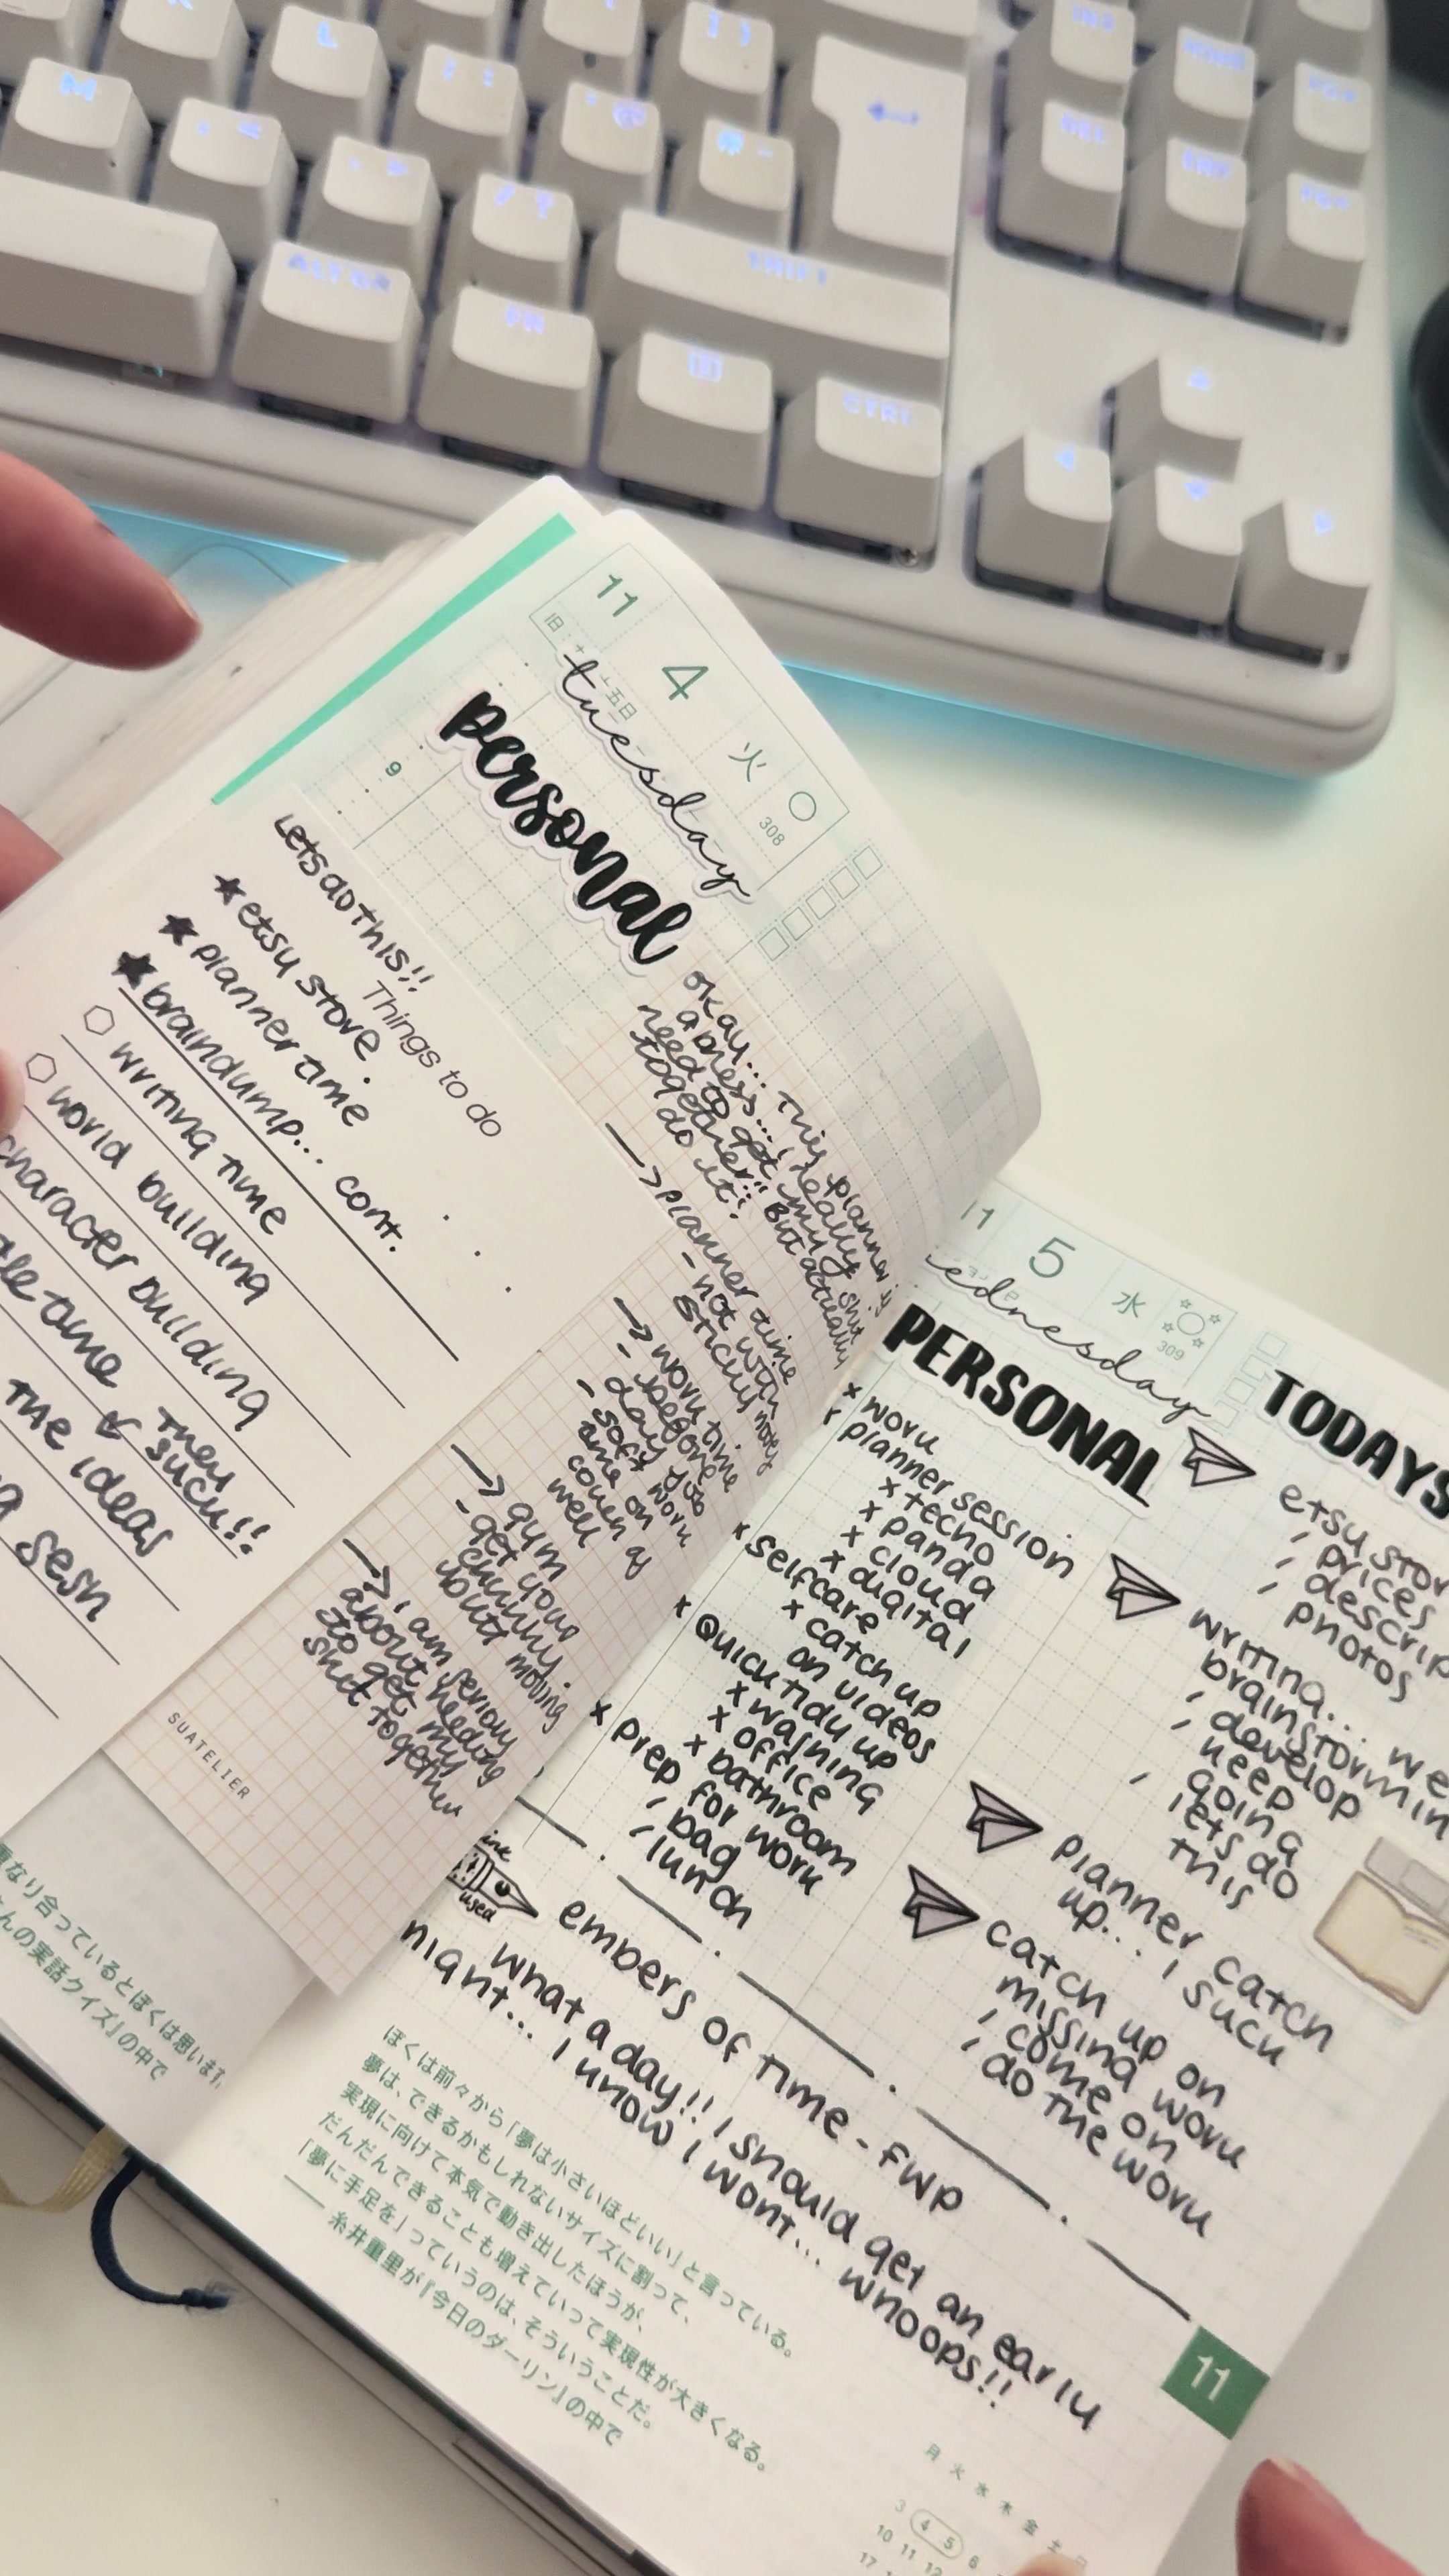 M
ALT GR
FN
SHIFT
CTRL
11
4
火
308
tuesday
personal
9
Lets do this!!
Things to do
etsy store
planner time
braindump... cont.
writing time
world building
character building
time
they suck!!
the ideas
sesh
okay... this planner is
a mess... I really
need to get my shit
together!! But actually
do it!!
planner time
- not with
sticky notes
work time
gym
- get your
chunky
butt moving
I am serious
about needing
to get my
shit together
SUATELIER
なり合っているとぼくは思います
んの実話クイズ』の中で
11
5
水
309
wednesday
PERSONAL
x work
planner session
x techo
x panda
x cloud
x digital
x selfcare
x catch up
on videos
x Quick tidy up
x washing
x office
x bathroom
x prep for work
/ bag
/ lunch
TODAYS
etsy stor
/ prices
/ descrip
/ photos
writing... we
brainstormin
/ develop
/ keep
going
/ lets do
this
planner catch
up... I suck
catch up on
missing work
/ come on
/ do the work
used
embers of time - FWP
what a day!! I should get an early
night... I know I wont... whoops!!
ぼくは前々から「夢は小さいほどいい」と言っている。
夢は、できるかもしれないサイズに割って、
実現に向けて本気で動き出したほうが、
だんだんできることも増えていって実現性が大きくなる。
「夢に手足を」っていうのは、そういうことだ。
── 糸井重里が『今日のダーリン』の中で
11
月 火 水 木 金 土 日
3 4 5 6
10 11 12
17